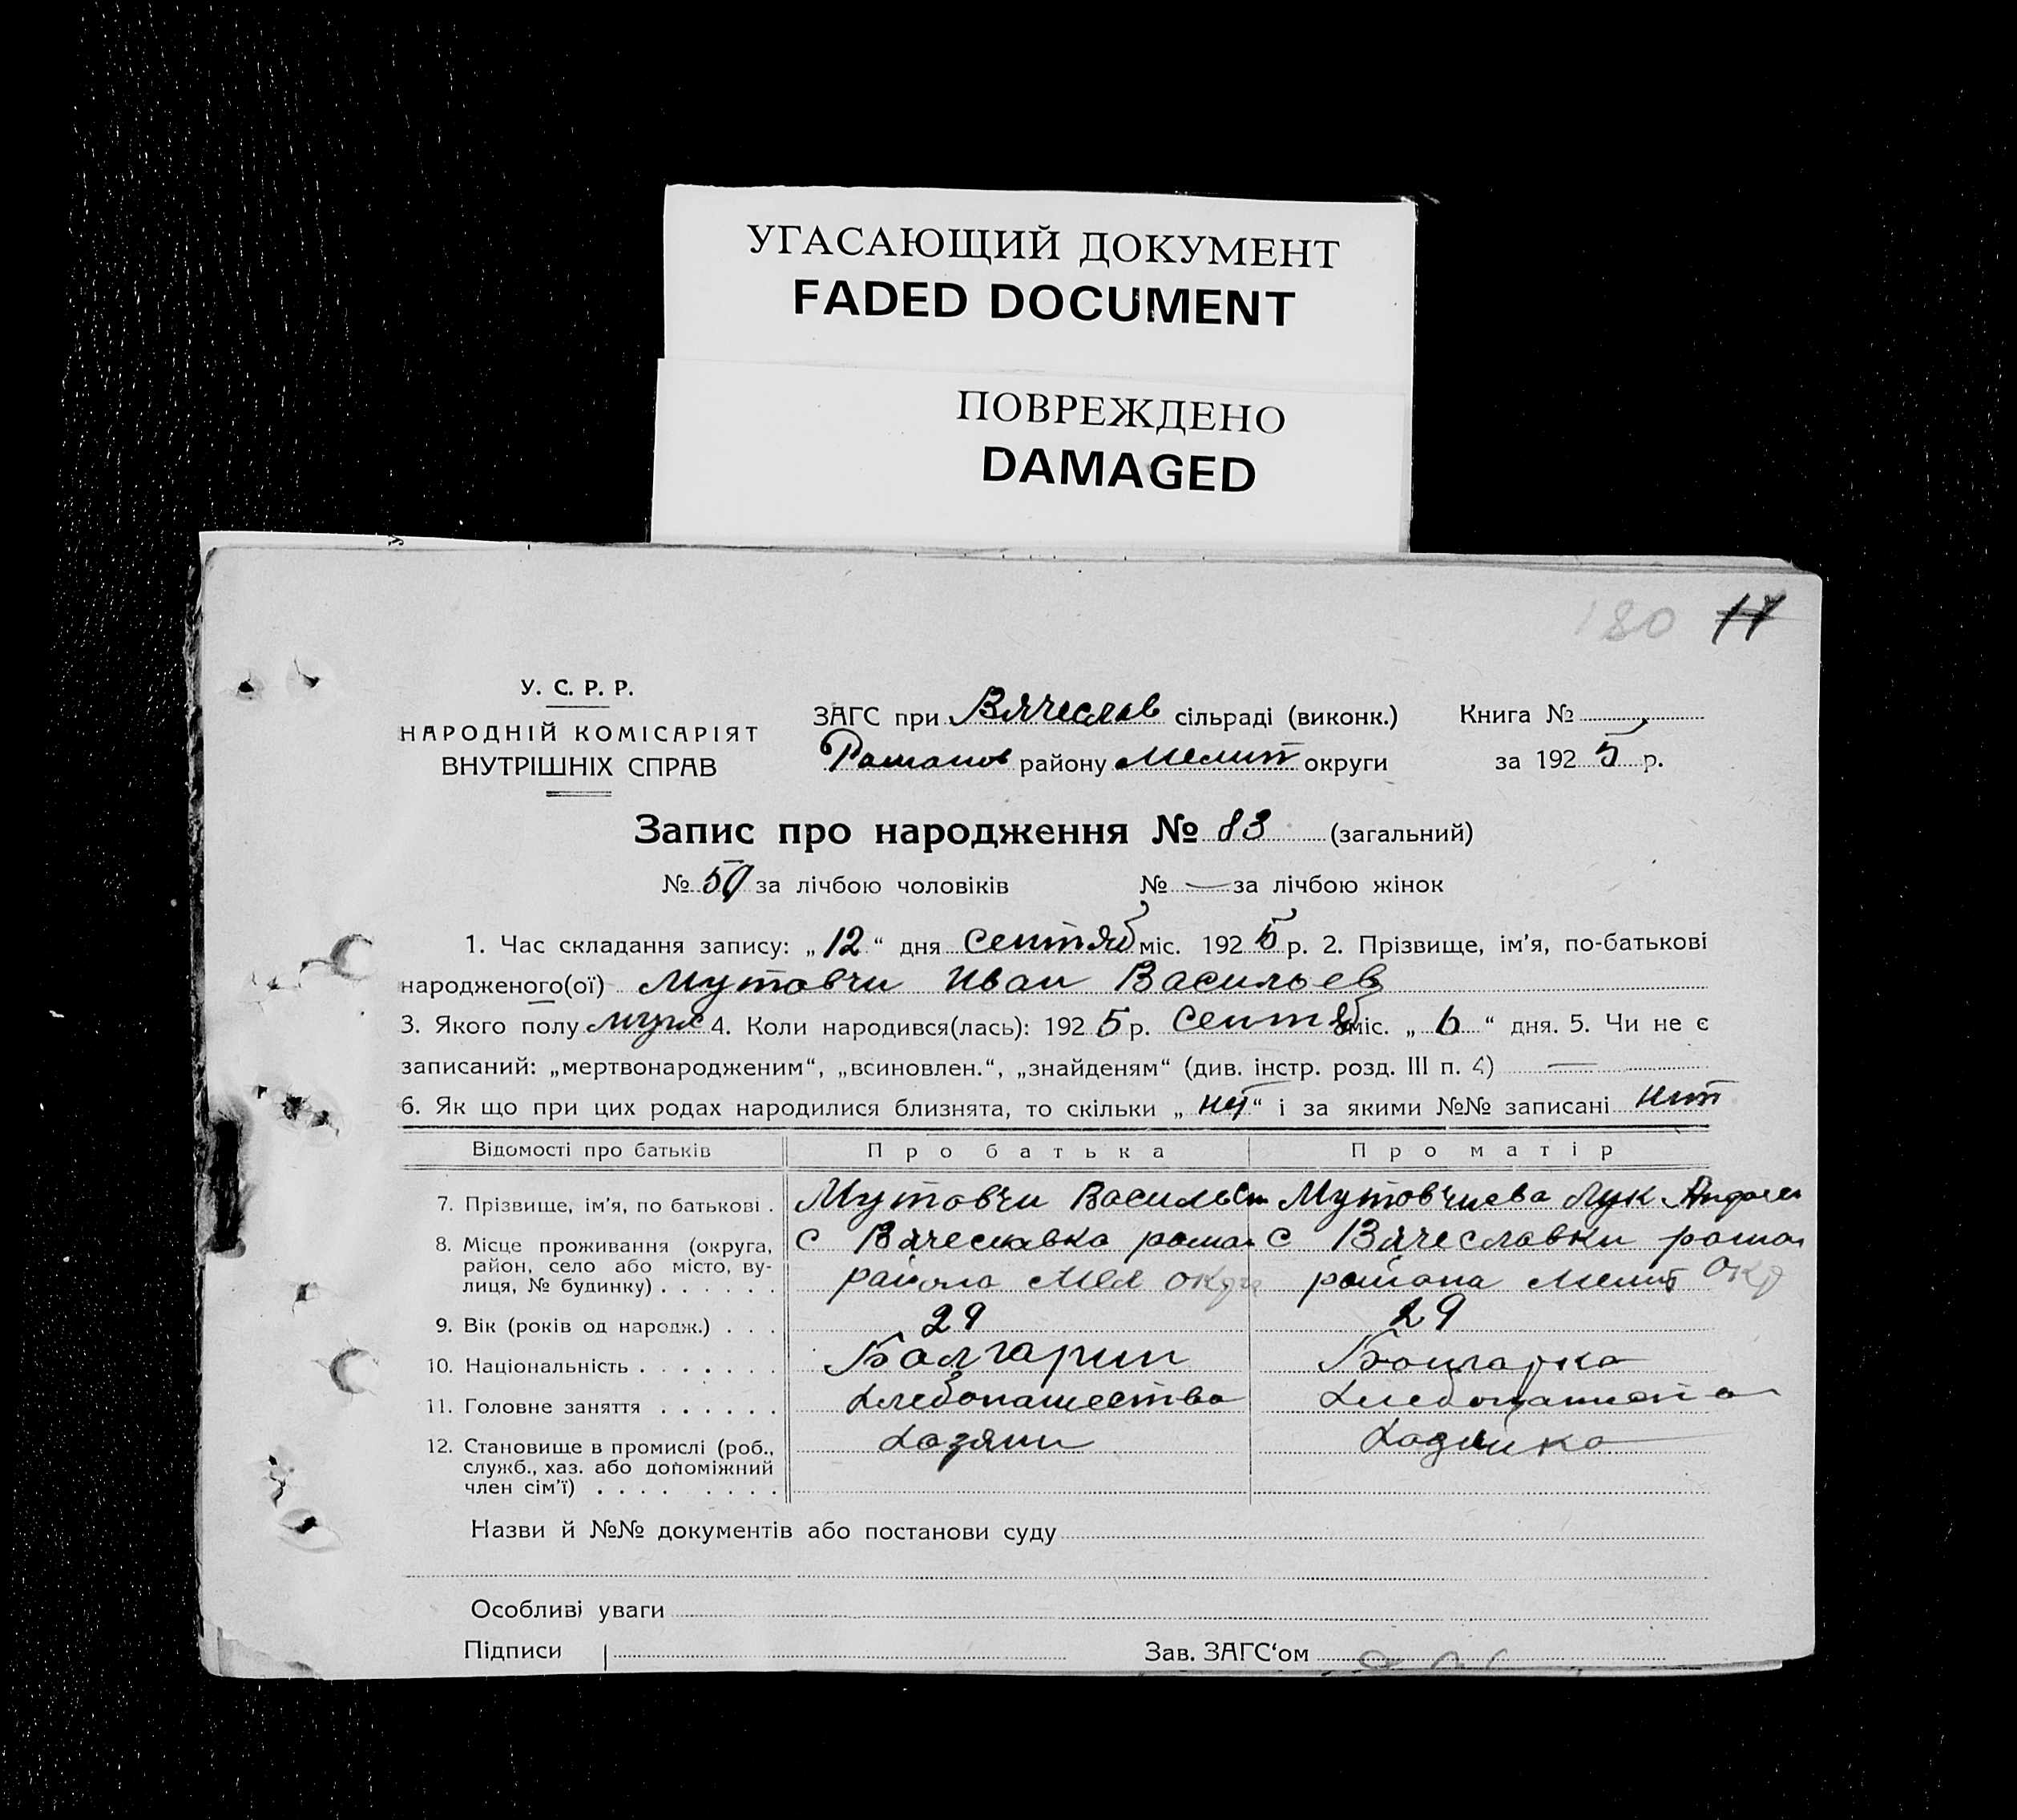 УГАСАЮЩИЙ ДОКУМЕНТ
FADED DOCUMENT
ПОВРЕЖДЕНО
DAMAGED
180 11
У. С. Р. Р.
НАРОДНІЙ КОМІСАРІЯТ
ВНУТРІШНІХ СПРАВ
ЗАГС при Вячеслав сільраді (виконк.)
Романов району Мелит округи
Книга №
за 1925 р.
Запис про народження № 83 (загальний)
№ 50 за лічбою чоловіків № — за лічбою жінок
1. Час складання запису: „12“ дня Сентяб міс. 1925 р. 2. Прізвище, ім'я, по-батькові
народженого(ої) Мутовчи Иван Васильев
3. Якого полу муж 4. Коли народився(лась): 1925 р. Сентяб міс. „6“ дня. 5. Чи не є
записаний: „мертвонародженим“, „всиновлен.“, „знайденям“ (див. інстр. розд. III п. 4) —
6. Як що при цих родах народилися близнята, то скільки „нет“ і за якими №№ записані нит
Відомості про батьків Про батька Про матір
7. Прізвище, ім'я, по батькові . Мутовчи Василь Мутовчиева Лук Андрее
8. Місце проживання (округа, с Вячеславка роман с Вячеславки роман
район, село або місто, ву-
лиця, № будинку) . . . . . . района Мел окр района Мелит окр
9. Вік (років од народж.) . . . 29 29
10. Національність . . . . . . . Болгарин Болгарка
11. Головне заняття . . . . . . Хлебопашество Хлебопашество
12. Становище в промислі (роб., Хозяин Хозяйка
служб., хаз. або допоміжний
член сім'ї) . . . . . . . . .
Назви й №№ документів або постанови суду
Особливі уваги
Підписи Зав. ЗАГС'ом